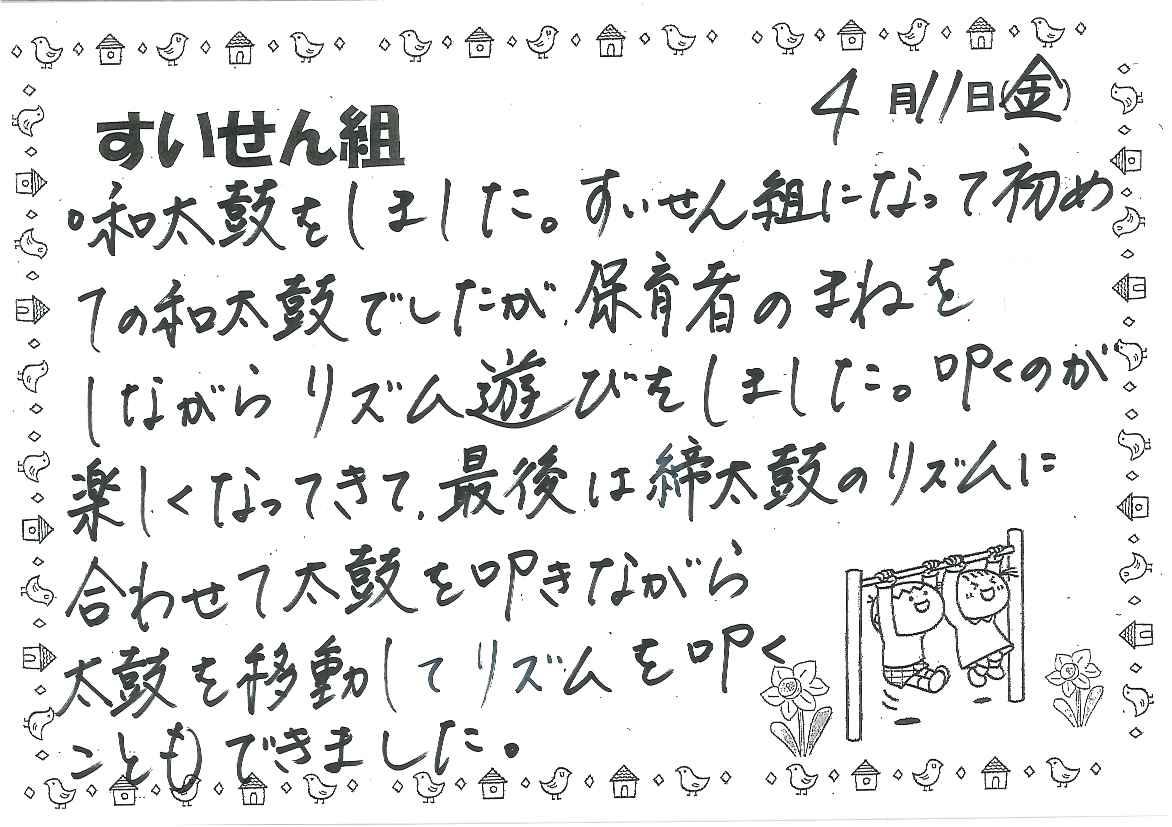 4月11日(金)
すいせん組
○和太鼓をしました。すいせん組になって初め
ての和太鼓でしたが、保育者のまねを
しながらリズム遊びをしました。叩くのが
楽しくなってきて、最後は締太鼓のリズムに
合わせて太鼓を叩きながら
太鼓を移動してリズムを叩く
こともできました。